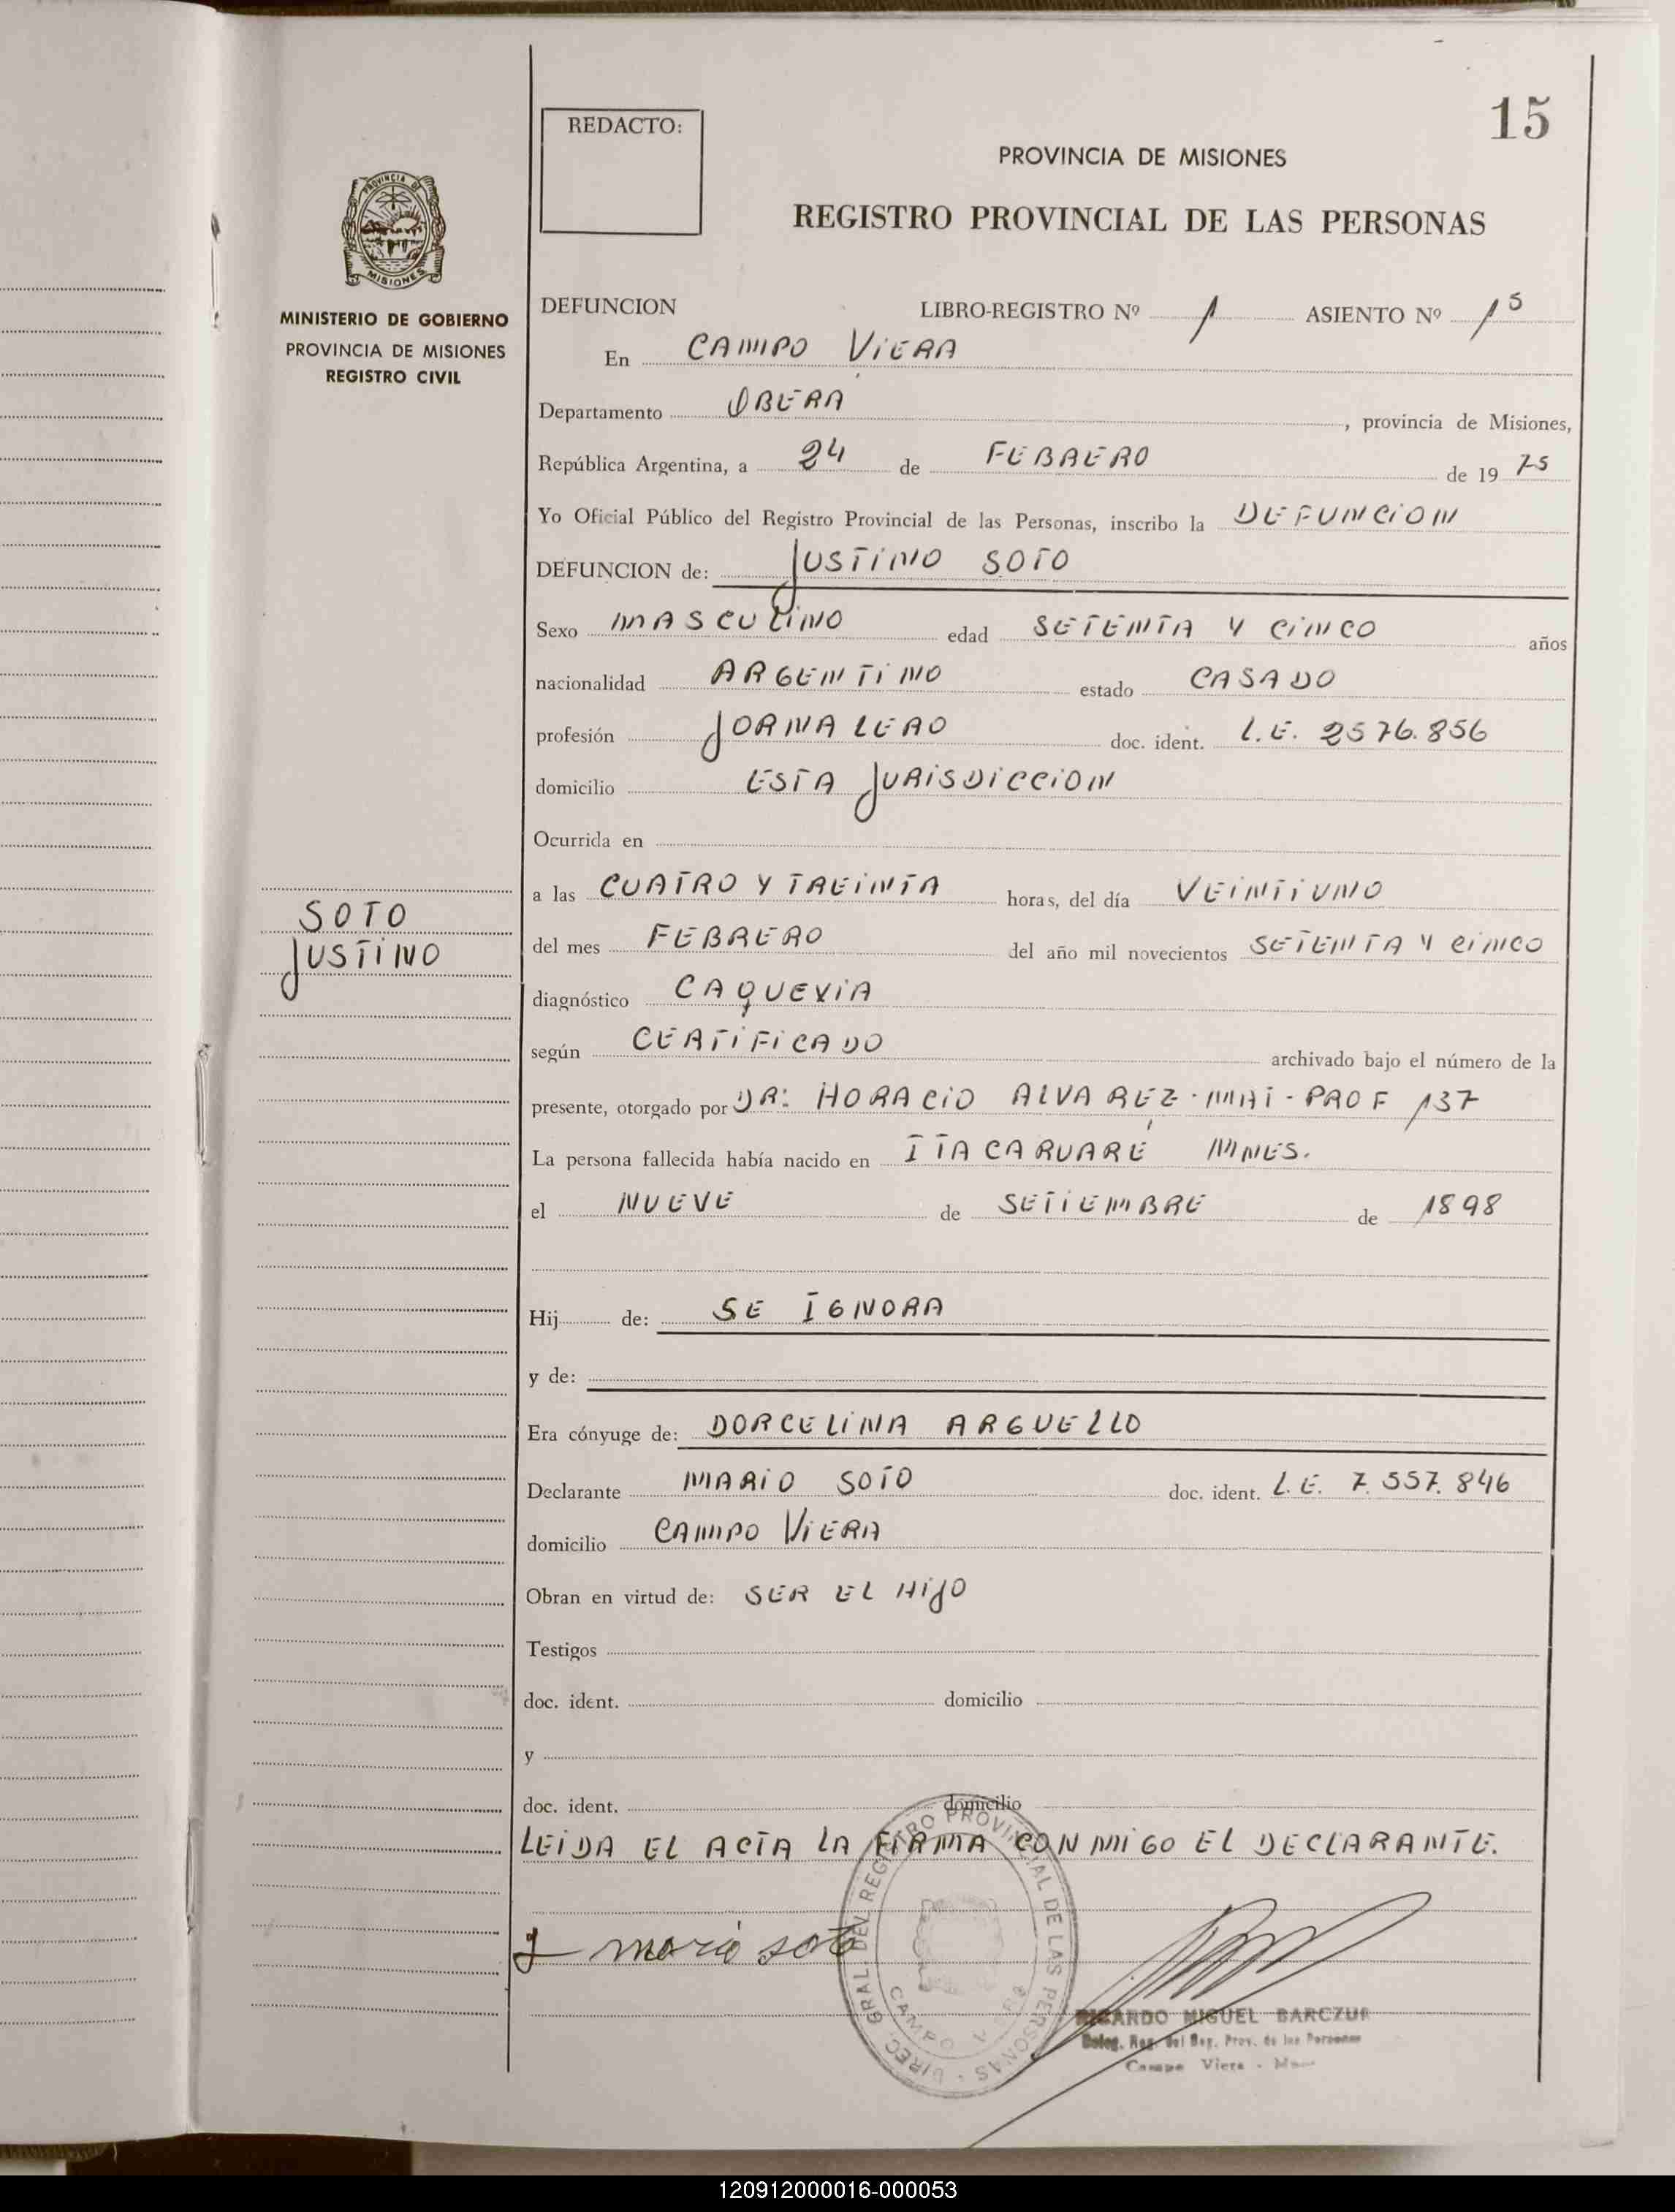 15
REDACTO:
PROVINCIA DE MISIONES
REGISTRO PROVINCIAL DE LAS PERSONAS
PROVINCIA DE
MISIONES
MINISTERIO DE GOBIERNO
PROVINCIA DE MISIONES
REGISTRO CIVIL
DEFUNCION LIBRO-REGISTRO Nº 1 ASIENTO Nº 15
En CAMPO VIERA
Departamento OBERÁ, provincia de Misiones,
República Argentina, a 24 de FEBRERO de 1975
Yo Oficial Público del Registro Provincial de las Personas, inscribo la DEFUNCION
DEFUNCION de: JUSTINO SOTO
Sexo MASCULINO edad SETENTA Y CINCO años
nacionalidad ARGENTINO estado CASADO
profesión JORNALERO doc. ident. L.E. 2576.856
domicilio ESTA JURISDICCION
Ocurrida en
a las CUATRO Y TREINTA horas, del día VEINTIUNO
SOTO
JUSTINO
del mes FEBRERO del año mil novecientos SETENTA Y CINCO
diagnóstico CAQUEXIA
según CERTIFICADO archivado bajo el número de la
presente, otorgado por DR: HORACIO ALVAREZ - MAT - PROF 137
La persona fallecida había nacido en ITACARUARÉ MNES.
el NUEVE de SETIEMBRE de 1898
Hij de: SE IGNORA
y de:
Era cónyuge de: DORCELINA ARGUELLO
Declarante MARIO SOTO doc. ident. L.E. 7.557.846
domicilio CAMPO VIERA
Obran en virtud de: SER EL HIJO
Testigos
doc. ident. domicilio
y
doc. ident. domicilio
LEIDA EL ACTA LA FIRMA CONMIGO EL DECLARANTE.
mario soto
DIREC. GRAL. DEL REGISTRO PROVINCIAL DE LAS PERSONAS
CAMPO
RICARDO MIGUEL BARCZUK
Deleg. Reg. del Reg. Prov. de las Personas
Campo Viera -
120912000016-000053